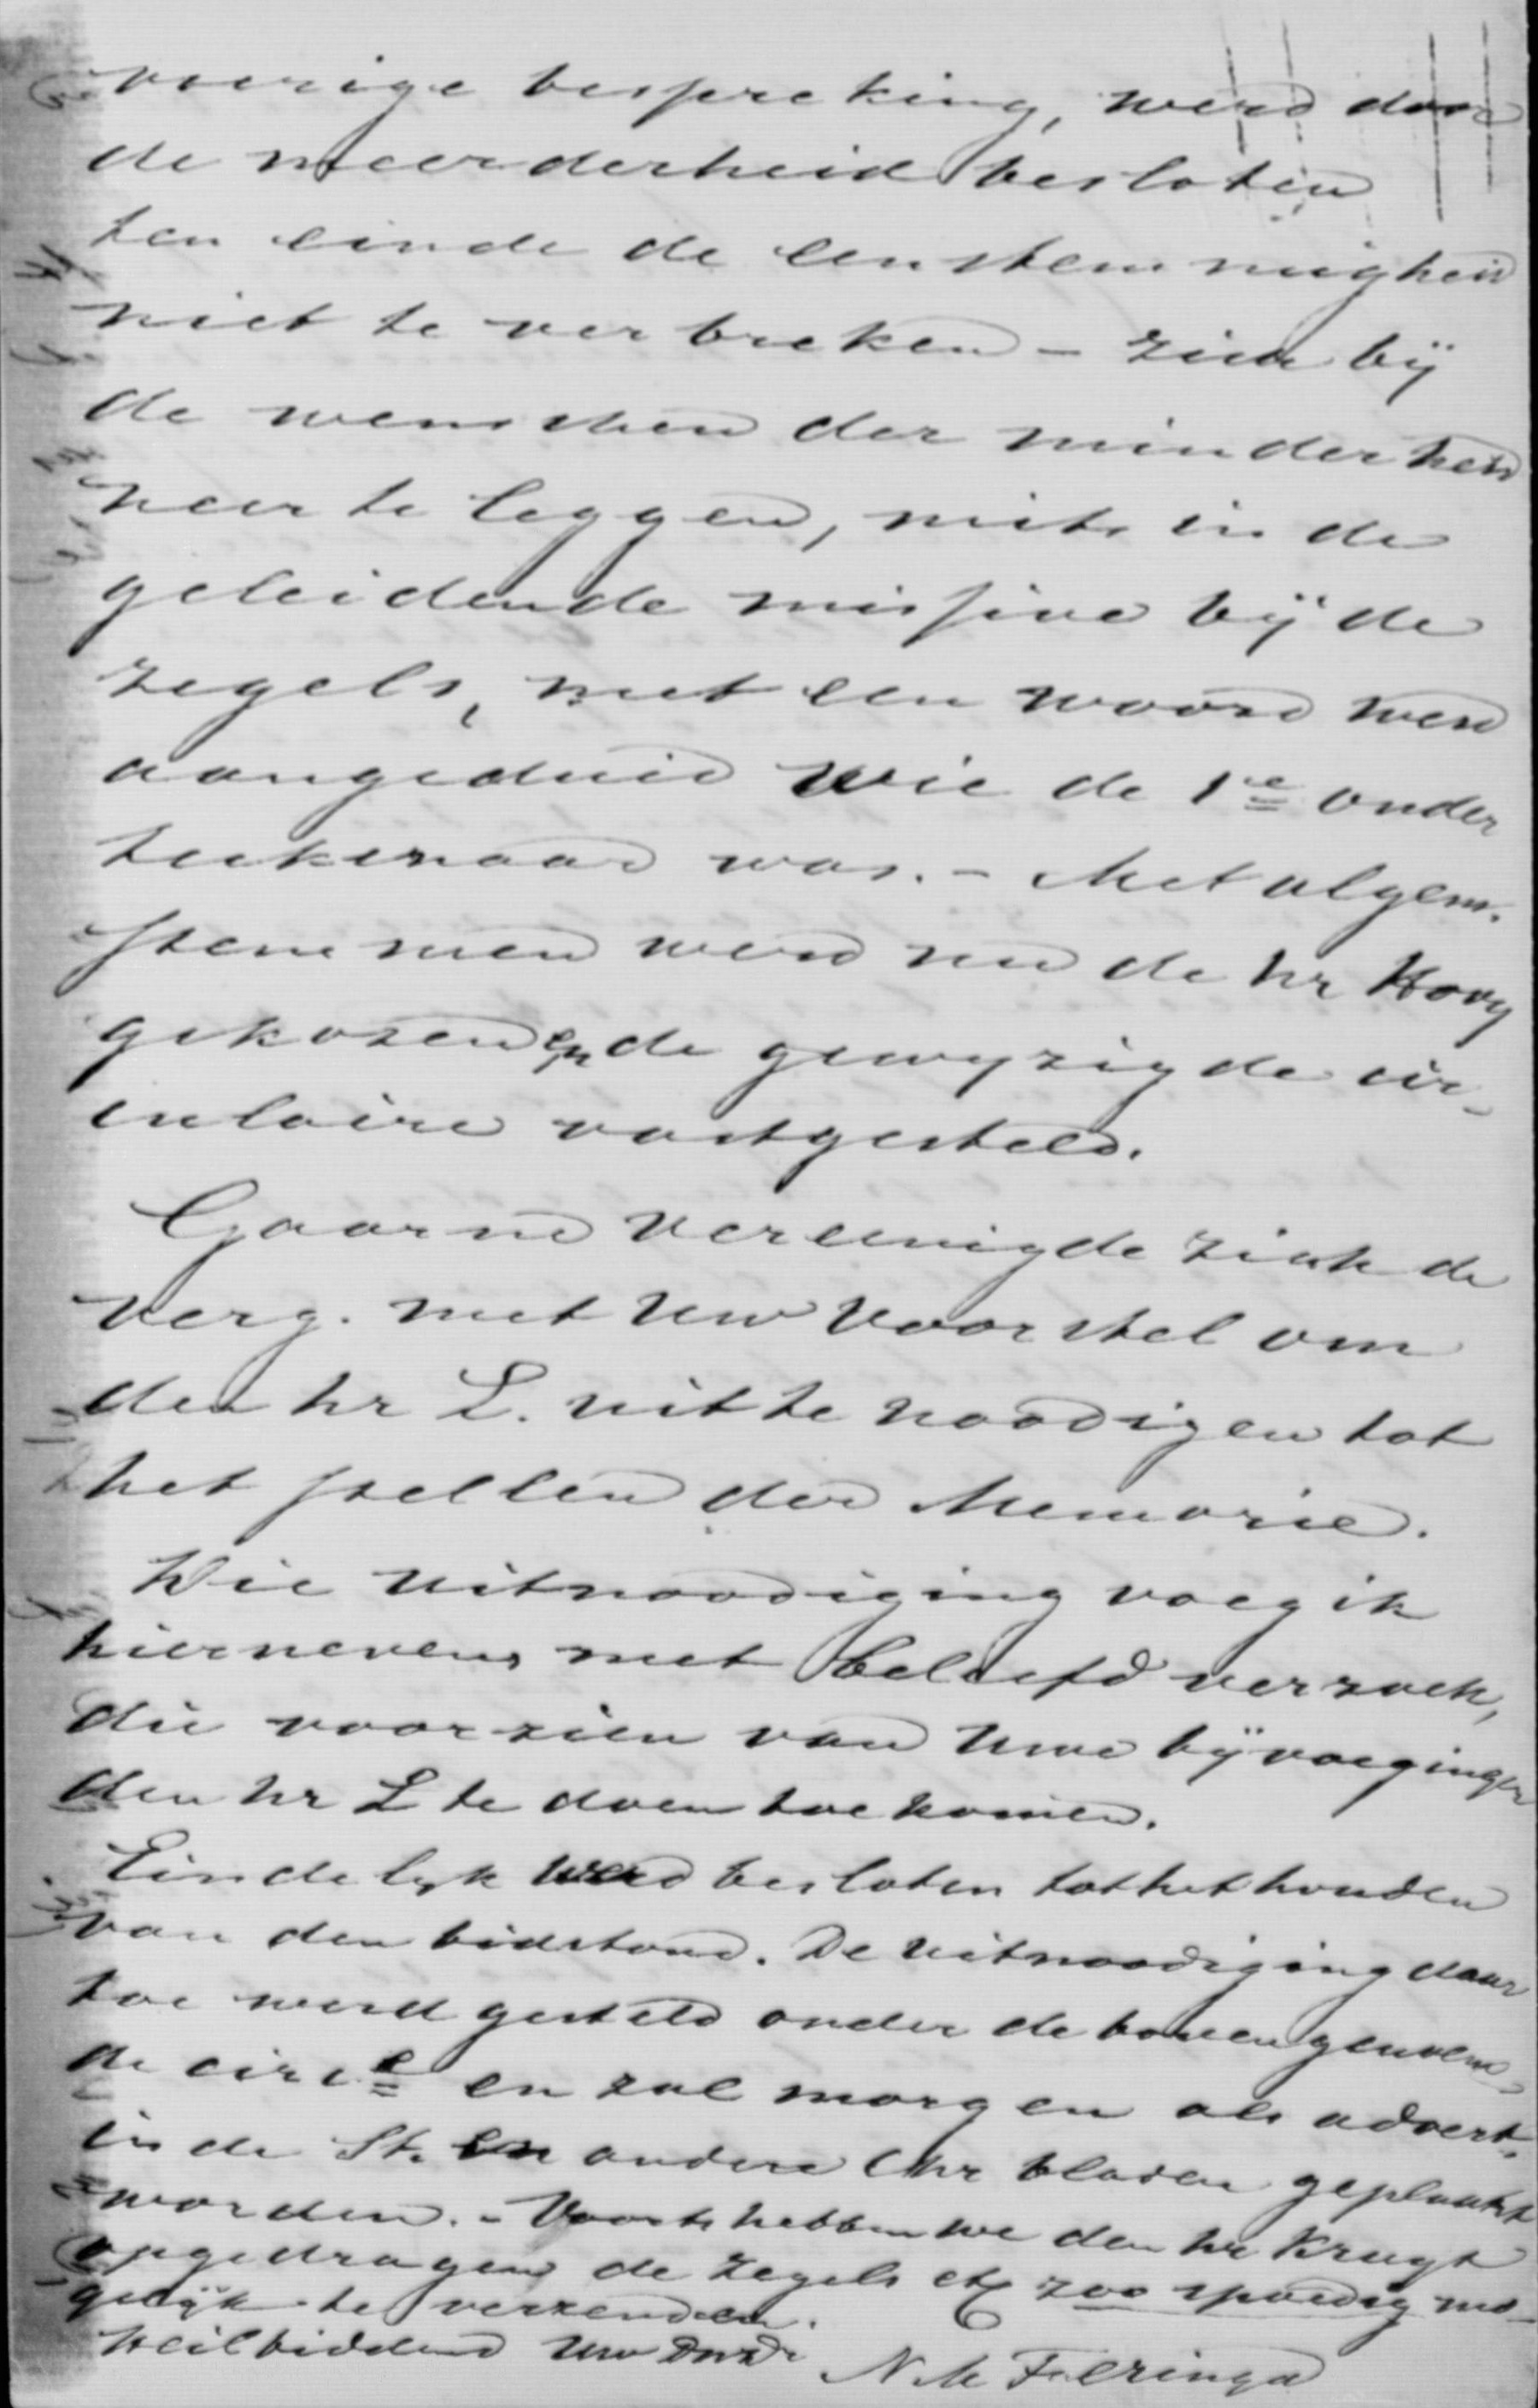 voerige bespreking, werd door
de meerderheid besloten
ten einde de eenstemmigheid
niet te verbreken - zich bij
de wenschen der minderheid
neer te leggen, mits in de
geleidende missive bij de
zegels, met een woord werd
aangeduid wie de 1e onder
teekenaar was. - Met algem.
stemmen werd nu de hr Hovy
gekozen en de gewyzigde cir-
culaire vastgesteld.
Gaarne vereenigde zich de
verg. met Uw voorstel om
den hr L. uit te noodigen tot
het stellen der Memorie.
Die uitnoodiging voeg ik
hiernevens met beleefd verzoek,
die voorzien van Uwe bijvoegingen
den hr L te doen toekomen.
Eindelyk werd besloten tot het houden
van den bidstond. De uitnoodiging daar
toe werd gesteld onder de bovengenoem-
de circe en zal morgen als advert.
in de St. en andere Chr bladen geplaatst
worden. - Voorts hebben we den hr Kruyt
opgedragen de zegels etc zoo spoedig mo-
gelijk te verzenden.
Heilbiddend Uw Dwd N M Feringa